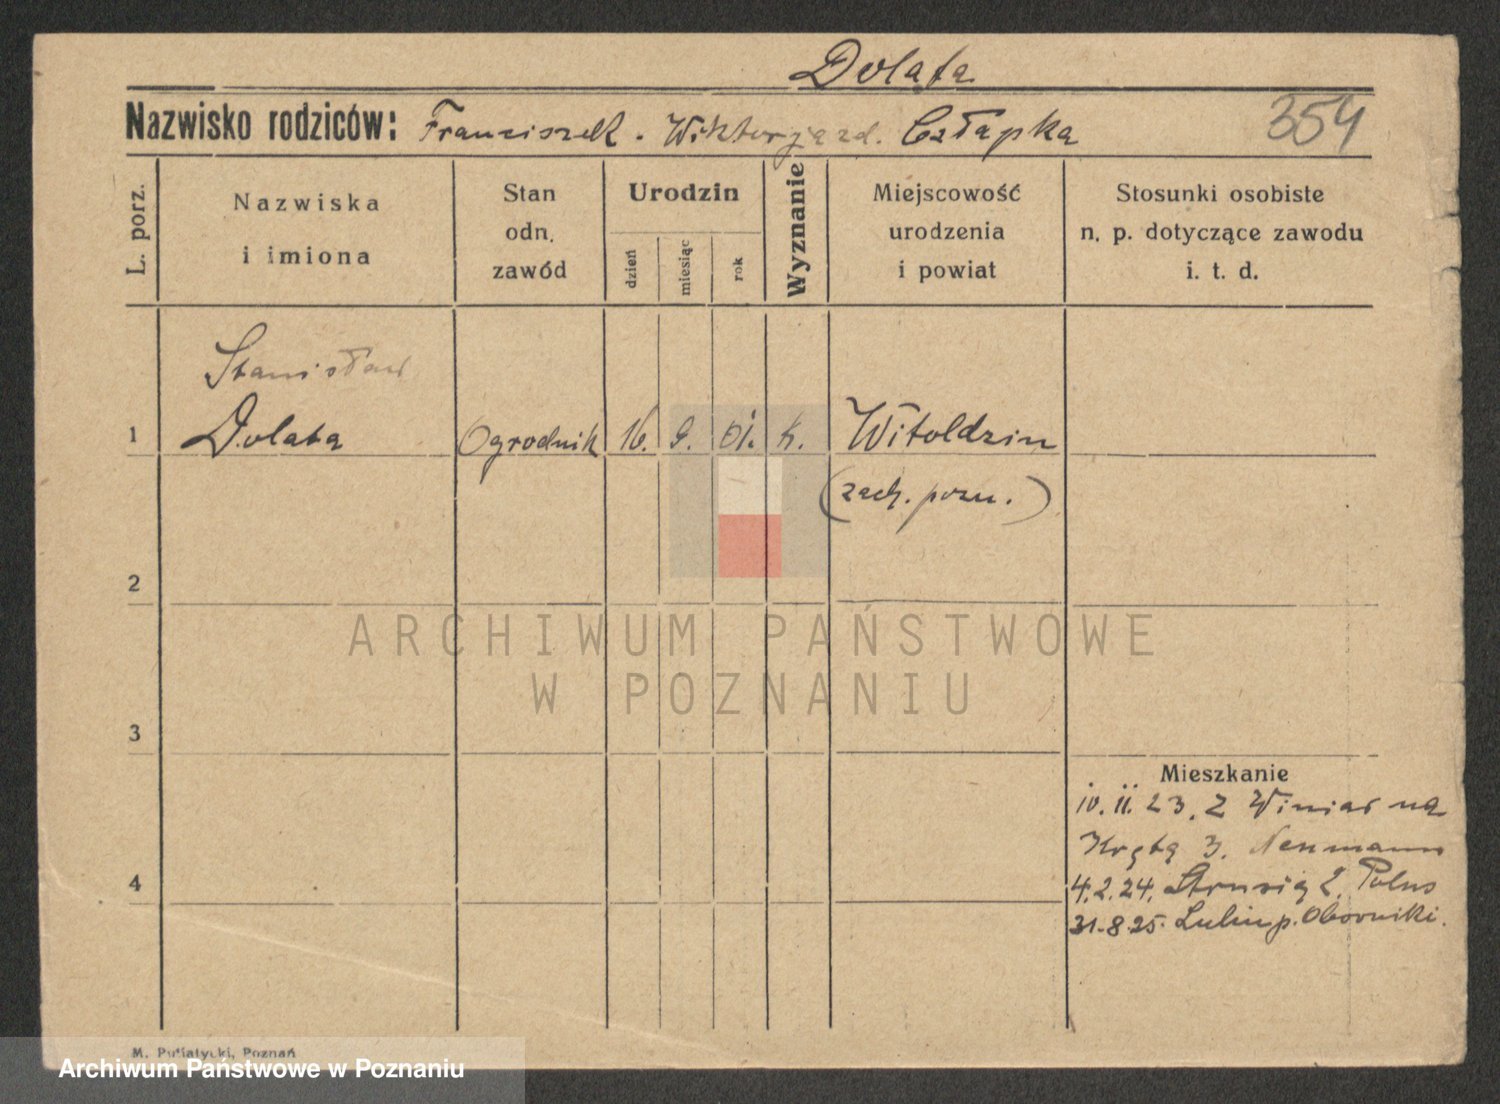 Dolata
Nazwisko rodziców: Franciszek . Wiktorja zd. Człapka
354
L. porz.
Nazwiska
i imiona
Stan
odn.
zawód
Urodzin
dzień
miesiąc
rok
Wyznanie
Miejscowość
urodzenia
i powiat
Stosunki osobiste
n. p. dotyczące zawodu
i. t. d.
Stanisław
1 Dolata Ogrodnik 16. 9. 01. k. Witoldzin
(zach. pozn.)
2
ARCHIWUM PAŃSTWOWE
W POZNANIU
3
Mieszkanie
10. 11. 23. Z Winiar na
Krętą 3. Neumann
4
4.2.24. Strusią 2. Polus
31.8.25. Lulin p. Oborniki.
M. Putiatycki, Poznań
Archiwum Państwowe w Poznaniu